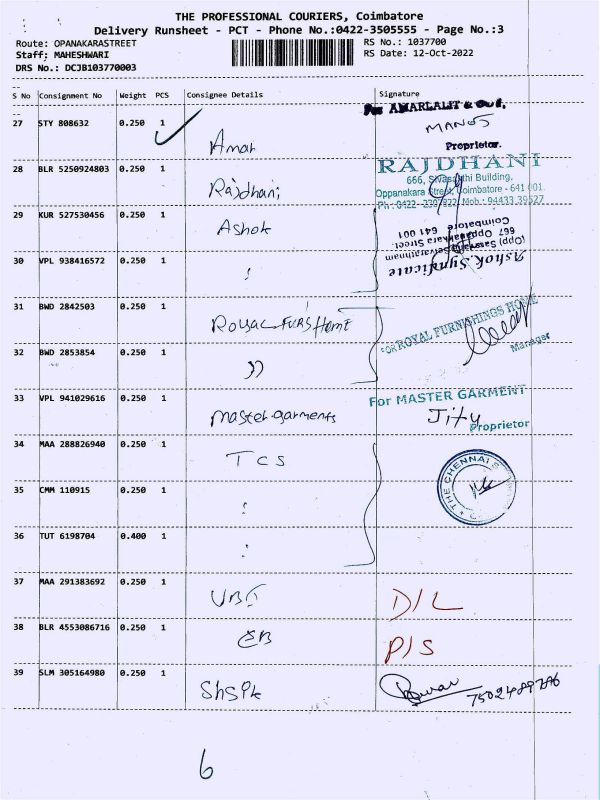 THE PROFESSIONAL COURIERS, Coimbatore
Delivery Runsheet - PCT - Phone No.:0422-3505555 - Page No.:3
Route: OPANAKARASTREET RS No.: 1037700
Staff: MAHESHWARI RS Date: 12-Oct-2022
DRS No.: DCJB103770003
S No Consignment No Weight PCS Consignee Details Signature
For AMARLALIT &
27 STY 808632 0.250 1 Amar MANOJ
Proprietor.
28 BLR 5250924803 0.250 1 Rajdhani RAJDHANI
666, Sivasakthi Building,
Oppanakara Street, Coimbatore - 641 001.
Ph : 0422 - Mob : 94433 39527
29 KUR 527530456 0.250 1 Ashok
667 Oppanakkara Street
Coimbatore 641 001
30 VPL 938416572 0.250 1 Ashok Syndicate
31 BWD 2842503 0.250 1 Royal FURS Home FOR ROYAL FURNISHINGS HOME
Manager
32 BWD 2853854 0.250 1 ))
33 VPL 941029616 0.250 1 Master garments For MASTER GARMENT
Proprietor
34 MAA 288826940 0.250 1 TCS
THE CHENNAI
35 CMM 110915 0.250 1
36 TUT 6198704 0.400 1
37 MAA 291383692 0.250 1 D/L
38 BLR 4553086716 0.250 1 P/S
39 SLM 305164980 0.250 1
6